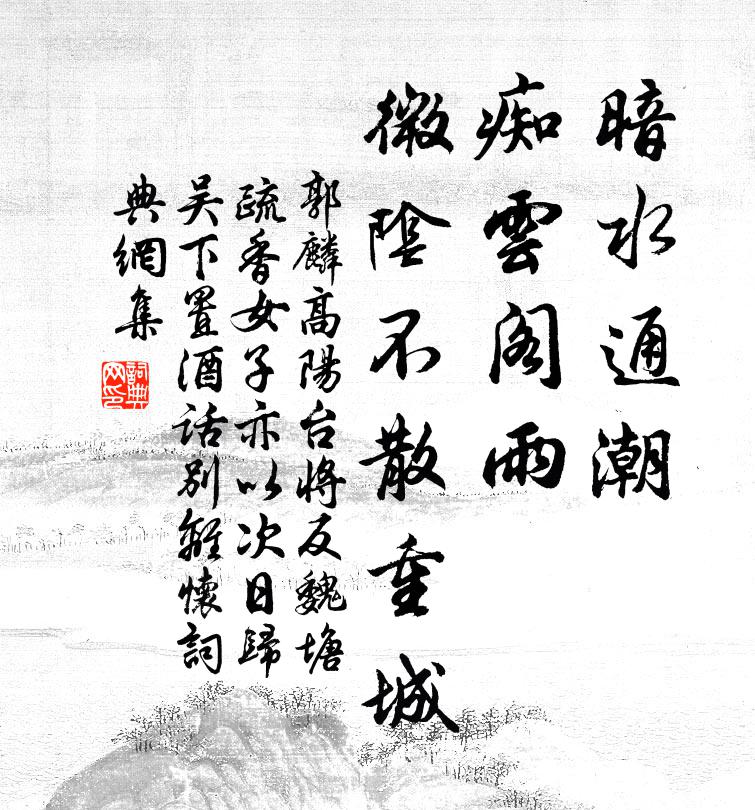 暗水通潮
痴雲閣雨
微陰不散重城
郭麟高陽台將反魏塘
疏香女子亦以次日歸
吴下置酒話别離懷詞
典網集
詞典網印